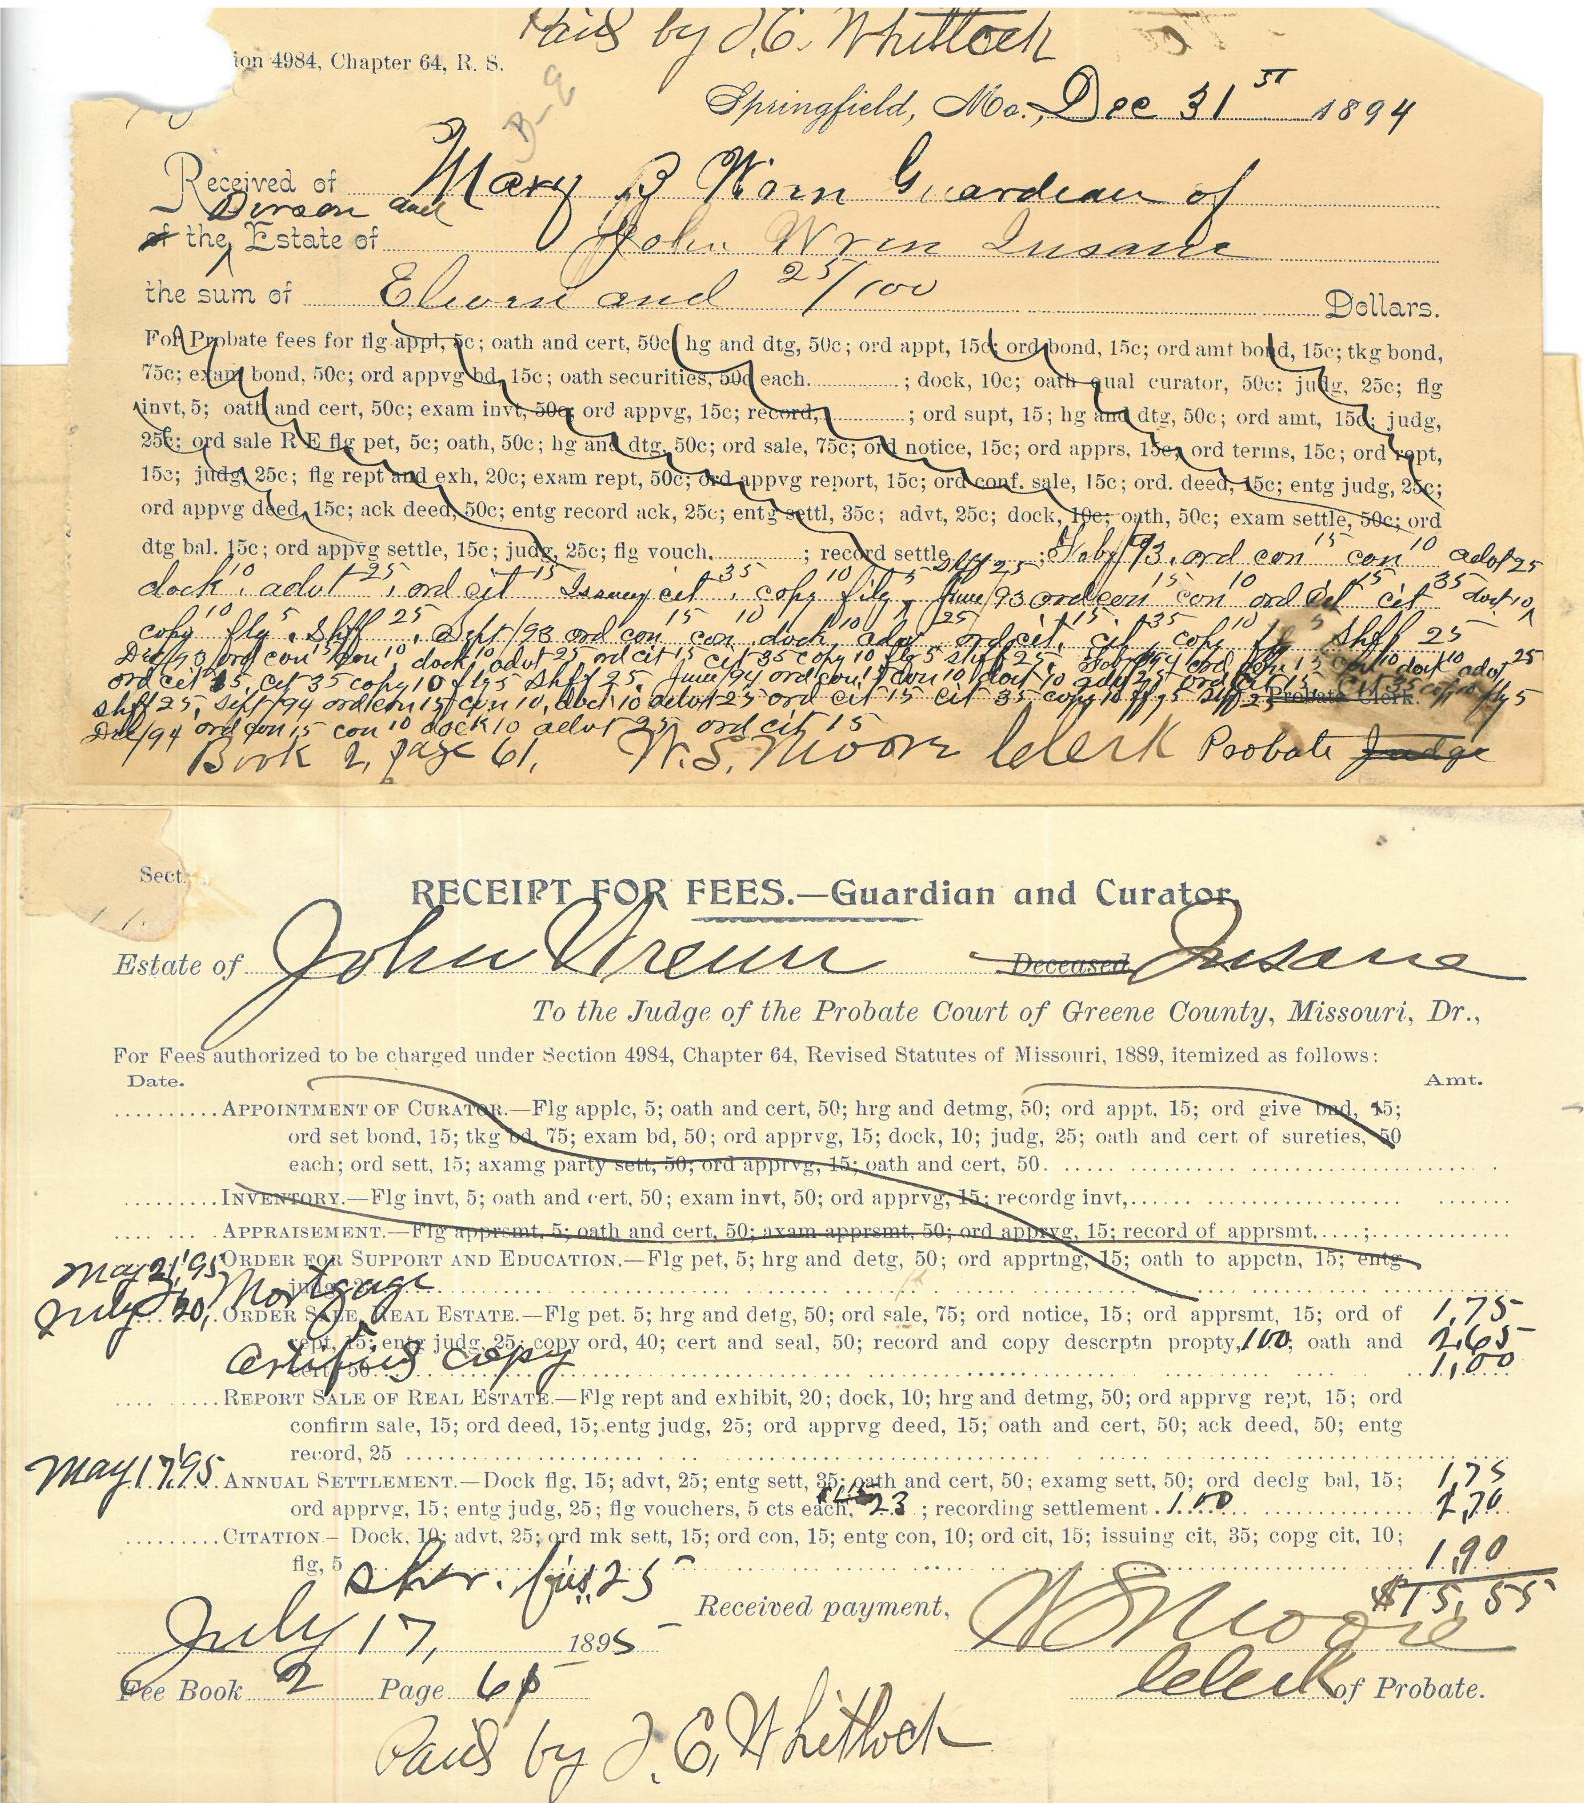 Paid by J. E. Whittock
ion 4984, Chapter 64, R. S.
B-2
Springfield, Mo., Dec 31st 1894
Received of Mary B Wrin Guardian of
Person and
of the Estate of John Wren Insane
the sum of Eleven and 25/100 Dollars.
For Probate fees for flg appl, 5c; oath and cert, 50c; hg and dtg, 50c; ord appt, 15c; ord bond, 15c; ord amt bond, 15c; tkg bond,
75c; exam bond, 50c; ord appvg bd, 15c; oath securities, 50c each. ; dock, 10c; oath qual curator, 50c; judg, 25c; flg
invt, 5; oath and cert, 50c; exam invt, 50c; ord appvg, 15c; record, ; ord supt, 15; hg and dtg, 50c; ord amt, 15c; judg,
25c; ord sale R E flg pet, 5c; oath, 50c; hg and dtg, 50c; ord sale, 75c; ord notice, 15c; ord apprs, 15c; ord terms, 15c; ord rept,
15c; judg, 25c; flg rept and exh, 20c; exam rept, 50c; ord appvg report, 15c; ord conf. sale, 15c; ord. deed, 15c; entg judg, 25c;
ord appvg deed, 15c; ack deed, 50c; entg record ack, 25c; entg settl, 35c; advt, 25c; dock, 10c; oath, 50c; exam settle, 50c; ord
dtg bal. 15c; ord appvg settle, 15c; judg, 25c; flg vouch. ; record settle ; Feby/93, ord con 15 con 10 advt 25
dock 10 advt 25, ord cit 15 Issuing cit 35, copy 10 filg 5 Shff 25, June/93 ord con 15 con 10 ord cit 15 cit 35 dock 10
copy 10 flg 5, Shff 25, Sept/93 ord con 15 con 10 dock 10 advt 25 ord cit 15 cit 35 copy 10 flg 5 Shff 25
Dec/93 ord con 15 con 10, dock 10 advt 25 ord cit 15 cit 35 copy 10 flg 5 Shff 25, Feb/94 ord con 15 con 10 dock 10 advt 25
ord cit 15, cit 35 copy 10 flg 5 Shff 25, June/94 ord con 15 con 10, dock 10 advt 25 ord cit 15 cit 35 copy 10 flg 5
Shff 25, Sept/94 ord con 15 con 10, dock 10 advt 25 ord cit 15 cit 35 copy 10 flg 5 Shff 25 Probate Clerk.
Dec/94 ord con 15 con 10 dock 10 advt 25 ord cit 15
Book 2, page 61, W. S. Moore Clerk Probate Judge
Sect.
RECEIPT FOR FEES.—Guardian and Curator.
Estate of John Wrenn Deceased Insane
To the Judge of the Probate Court of Greene County, Missouri, Dr.,
For Fees authorized to be charged under Section 4984, Chapter 64, Revised Statutes of Missouri, 1889, itemized as follows:
Date. Amt.
APPOINTMENT OF CURATOR.—Flg applc, 5; oath and cert, 50; hrg and detmg, 50; ord appt, 15; ord give bnd, 15;
ord set bond, 15; tkg bd, 75; exam bd, 50; ord apprvg, 15; dock, 10; judg, 25; oath and cert of sureties, 50
each; ord sett, 15; axamg party sett, 50; ord apprvg, 15; oath and cert, 50.
INVENTORY.—Flg invt, 5; oath and cert, 50; exam invt, 50; ord apprvg, 15; recordg invt,
APPRAISEMENT.—Flg apprsmt, 5; oath and cert, 50; axam apprsmt, 50; ord apprvg, 15; record of apprsmt. ;
May 21, '95 ORDER FOR SUPPORT AND EDUCATION.—Flg pet, 5; hrg and detg, 50; ord apprtng, 15; oath to appctn, 15; entg
judg, 25 Mortgage
July 20, ORDER SALE REAL ESTATE.—Flg pet. 5; hrg and detg, 50; ord sale, 75; ord notice, 15; ord apprsmt, 15; ord of 1,75
rept, 15; entg judg, 25; copy ord, 40; cert and seal, 50; record and copy descrptn propty, 1.00; oath and 2,65
cert, 50 Certified copy 1,00
REPORT SALE OF REAL ESTATE.—Flg rept and exhibit, 20; dock, 10; hrg and detmg, 50; ord apprvg rept, 15; ord
confirm sale, 15; ord deed, 15; entg judg, 25; ord apprvg deed, 15; oath and cert, 50; ack deed, 50; entg
record, 25
May 17, '95 ANNUAL SETTLEMENT.—Dock flg, 15; advt, 25; entg sett, 35; oath and cert, 50; examg sett, 50; ord declg bal, 15; 1,75
ord apprvg, 15; entg judg, 25; flg vouchers, 5 cts each, 23 ; recording settlement. 1.00 2,70
CITATION— Dock, 10; advt, 25; ord mk sett, 15; ord con, 15; entg con, 10; ord cit, 15; issuing cit, 35; copg cit, 10;
flg, 5 sher. fees 25 1,90
$15,55
July 17, 1895 Received payment, W S Moore
Fee Book 2 Page 65 Clerk of Probate.
Paid by J. E. Whitlock